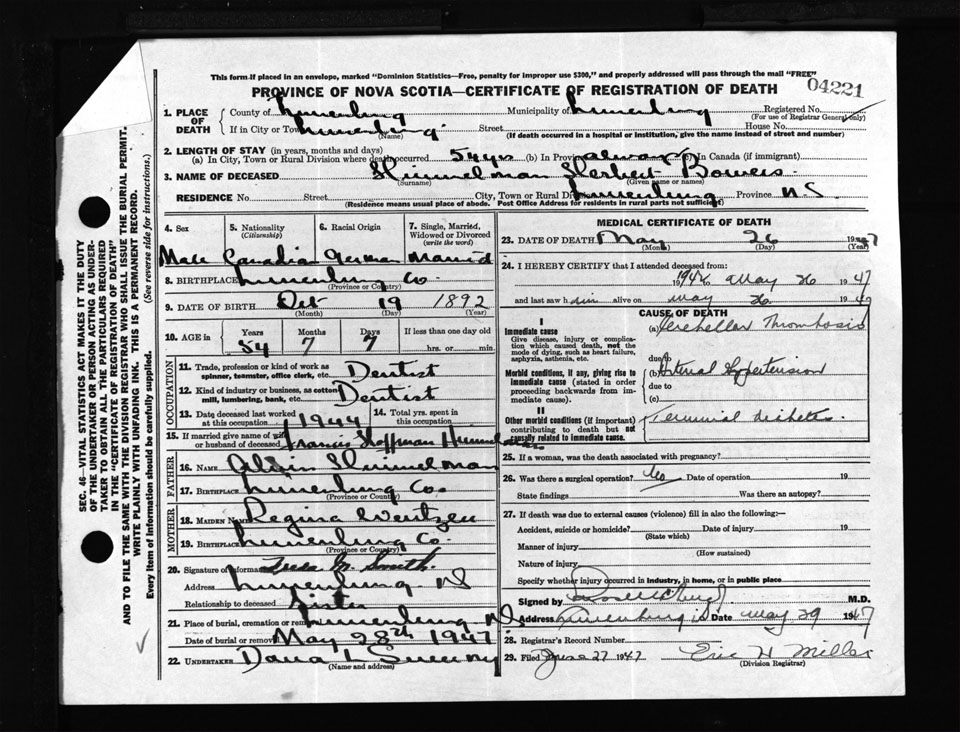 This form if placed in an envelope, marked "Dominion Statistics—Free, penalty for improper use $300," and properly addressed will pass through the mail "FREE"
04221
PROVINCE OF NOVA SCOTIA—CERTIFICATE OF REGISTRATION OF DEATH
1. PLACE OF DEATH
County of Lunenburg Municipality of Lunenburg Registered No.
(For use of Registrar General only)
If in City or Town Lunenburg Street House No.
(Name) (If death occurred in a hospital or institution, give the name instead of street and number)
2. LENGTH OF STAY (in years, months and days)
(a) In City, Town or Rural Division where death occurred 54 yrs (b) In Province always (c) In Canada (if immigrant)
3. NAME OF DECEASED Himmelman Herbert Bowers
(Surname) (Given name or names)
RESIDENCE No. Street City, Town or Rural Div. Lunenburg Province N.S.
(Residence means usual place of abode. Post Office Address for residents in rural parts not sufficient)
4. Sex 5. Nationality (Citizenship) 6. Racial Origin 7. Single, Married, Widowed or Divorced (write the word)
Male Canadian German Married
8. BIRTHPLACE Lunenburg Co
(Province or County)
9. DATE OF BIRTH Oct 19 1892
(Month) (Day) (Year)
10. AGE in Years Months Days If less than one day old
54 7 7 hrs. or min.
OCCUPATION
11. Trade, profession or kind of work as spinner, teamster, office clerk, etc. Dentist
12. Kind of industry or business, as cotton mill, lumbering, bank, etc. Dentist
13. Date deceased last worked at this occupation 1944 14. Total yrs. spent in this occupation
15. If married give name of wife or husband of deceased Francis Hoffman Himmelman
FATHER
16. NAME Himmelman
17. BIRTHPLACE Lunenburg Co.
(Province or County)
MOTHER
18. MAIDEN NAME Regina Wentzell
19. BIRTHPLACE Lunenburg Co.
(Province or County)
20. Signature of informant M. Smith.
Address Lunenburg NS
Relationship to deceased Sister
21. Place of burial, cremation or removal Lunenburg NS
Date of burial or removal May 28th 1947
22. UNDERTAKER Dana L Sweeny
(Name and address)
MEDICAL CERTIFICATE OF DEATH
23. DATE OF DEATH May 26 1947
(Month) (Day) (Year)
24. I HEREBY CERTIFY that I attended deceased from:
May 26 1947
and last saw him alive on May 26 19
CAUSE OF DEATH
I
Immediate cause
Give disease, injury or complication which caused death, not the mode of dying, such as heart failure, asphyxia, asthenia, etc.
(a) Cerebellar Thrombosis
due to
Morbid conditions, if any, giving rise to immediate cause (stated in order proceeding backwards from immediate cause).
(b) Arterial Hypertension
due to
(c)
II
Other morbid conditions (if important) contributing to death but not causally related to immediate cause.
Terminal diabetes.
25. If a woman, was the death associated with pregnancy?
26. Was there a surgical operation? No Date of operation 19
State findings Was there an autopsy?
27. If death was due to external causes (violence) fill in also the following:—
Accident, suicide or homicide? Date of injury 19
(State which)
Manner of injury
(How sustained)
Nature of injury
Specify whether injury occurred in industry, in home, or in public place
Signed by M.D.
Address Lunenburg Date May 29 1947
28. Registrar's Record Number
29. Filed June 27 1947 Eric H Millar
(Division Registrar)
SEC. 46—VITAL STATISTICS ACT MAKES IT THE DUTY
OF THE UNDERTAKER OR PERSON ACTING AS UNDER-
TAKER TO OBTAIN ALL THE PARTICULARS REQUIRED
IN THE "CERTIFICATE OF REGISTRATION OF DEATH"
AND TO FILE THE SAME WITH THE DIVISION REGISTRAR WHO SHALL ISSUE THE BURIAL PERMIT.
WRITE PLAINLY WITH UNFADING INK. THIS IS A PERMANENT RECORD.
Every item of information should be carefully supplied. (See reverse side for instructions.)